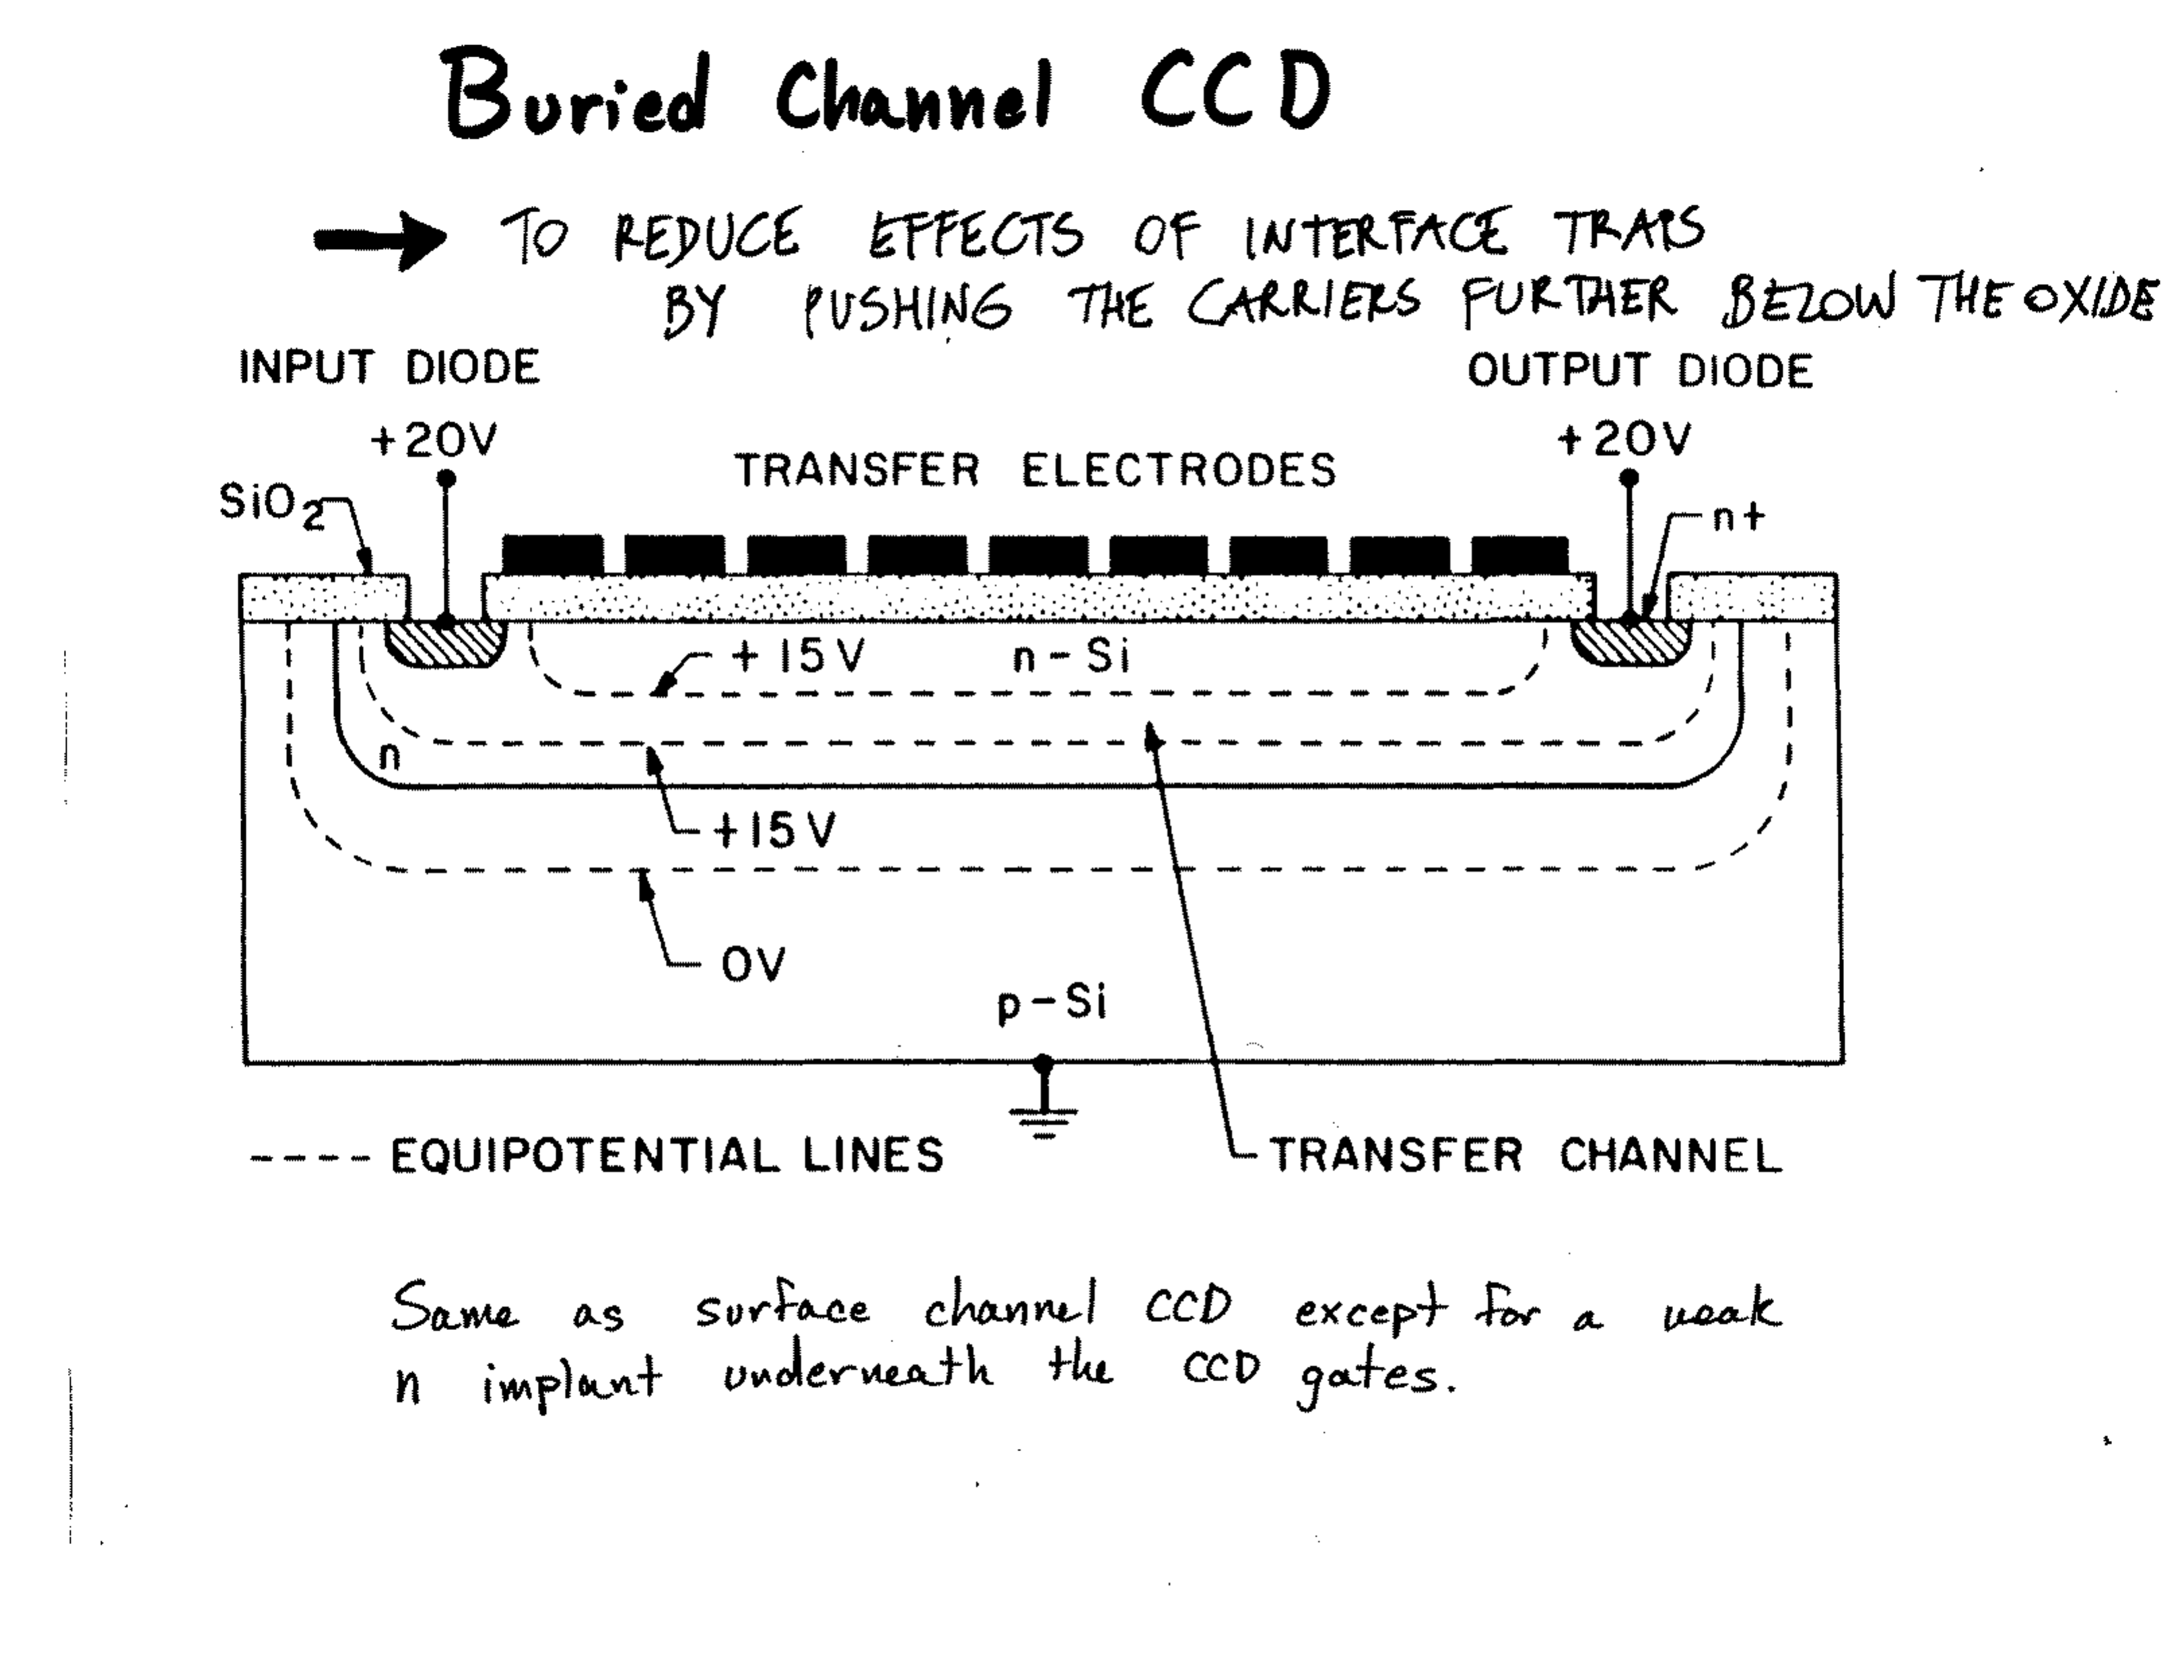 Buried Channel CCD
TO REDUCE EFFECTS OF INTERFACE TRAPS
BY PUSHING THE CARRIERS FURTHER BELOW THE OXIDE
INPUT DIODE
OUTPUT DIODE
+20V
+20V
TRANSFER ELECTRODES
SiO2
n+
+15V
n-Si
n
+15V
0V
p-Si
---- EQUIPOTENTIAL LINES
TRANSFER CHANNEL
Same as surface channel CCD except for a weak
n implant underneath the CCD gates.